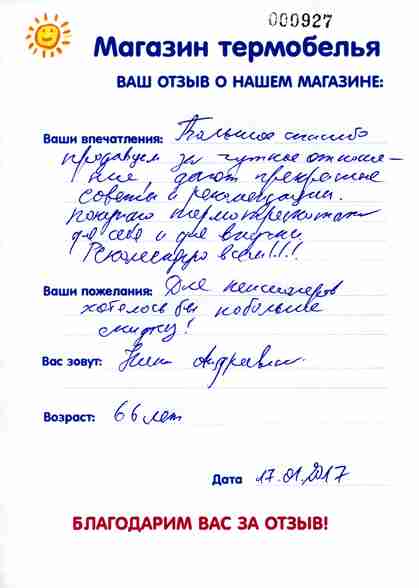 000927
Магазин термобелья
ВАШ ОТЗЫВ О НАШЕМ МАГАЗИНЕ:
Ваши впечатления: Большое спасибо
продавцам за чуткое отноше-
ние, дают прекрасные
советы и рекомендации.
Покупаю термотрикотаж
для себя и для внучки
Рекомендую всем!!!!
Ваши пожелания: Для пенсионеров
хотелось бы побольше
скидку!
Вас зовут: Нина
Возраст: 66 лет
Дата 17.01.2017
БЛАГОДАРИМ ВАС ЗА ОТЗЫВ!